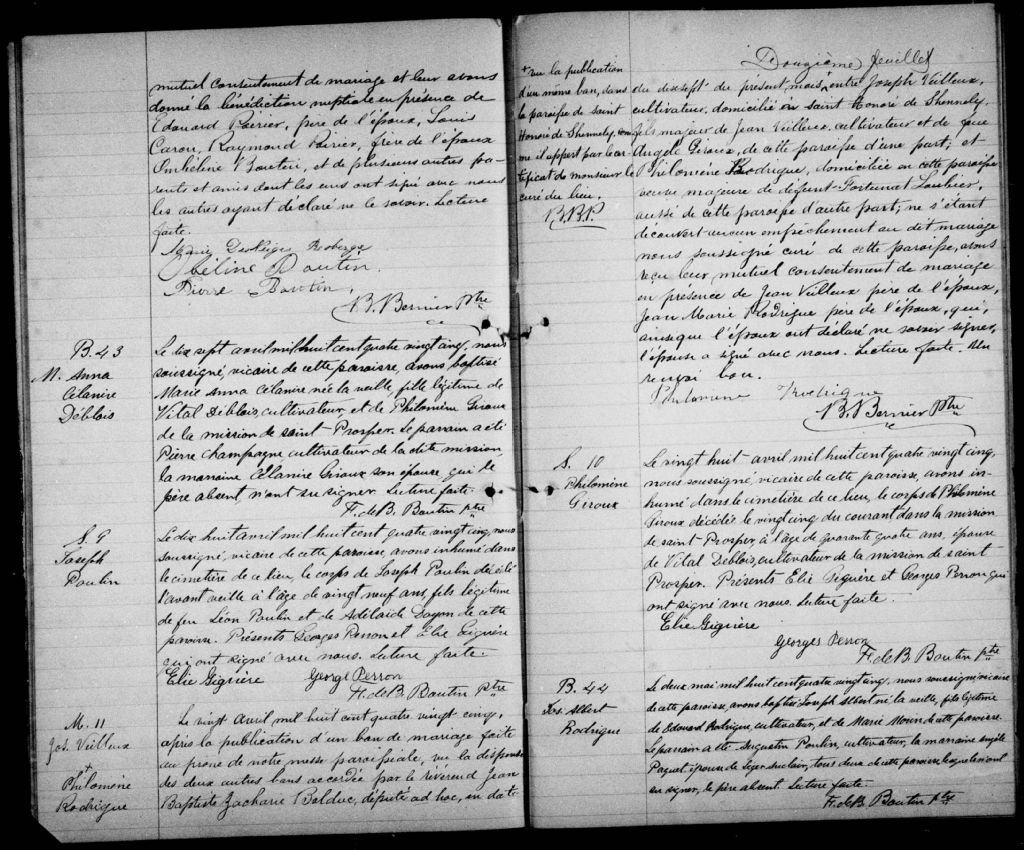 mutuel consentement de mariage et leur avons
donné la bénédiction nuptiale en présence de
Edouard Poirier, père de l'époux, Louis
Caron, Raymond Poirier, frère de l'époux
Ombéline Boutin, et de plusieurs autres pa-
rents et amis dont les uns ont signé avec nous
les autres ayant déclaré ne le savoir. Lecture
faite.
Marie Roberge
Boutin
Pierre Boutin
B. Bernier Ptre
B. 43
M. Anna
Célanire
Déblois
Le dix sept avril mil huit cent quatre vingt cinq, nous
soussigné, vicaire de cette paroisse, avons baptisé
Marie Anna Célanire née la veille, fille légitime de
Vital Déblois, cultivateur, et de Philomène Giroux
de la mission de saint-Prosper. Le parrain a été
Pierre Champagne cultivateur de la dite mission,
la marraine Célanire Giroux son épouse, qui de
père absent n'ont su signer. Lecture faite.
F. de B. Boutin ptre
S. 9
Joseph
Poulin
Le dix huit avril mil huit cent quatre vingt cinq, nous
soussigné, vicaire de cette paroisse, avons inhumé dans
le cimetière de ce lieu, le corps de Joseph Poulin décédé
l'avant veille à l'âge de vingt neuf ans, fils légitime
de feu Léon Poulin et de Adélaïde de cette
paroisse. Présents Georges Perron et Elie Giguère
qui ont signé avec nous. Lecture faite.
Elie Giguère George Perron
F. de B. Boutin ptre
M. 11
Jos. Veilleux
+
Philomène
Rodrigue
Le vingt avril mil huit cent quatre vingt cinq,
après la publication d'un ban de mariage faite
au prône de notre messe paroissiale, vu la dispense
des deux autres bans accordée par le révérend Jean
Baptiste Zacharie Bolduc, député ad hoc, en dat-
Douzième feuillet
+ vu la publication
d'un même ban, dans
la paroisse de saint
Honoré de Shennely, com
me il appert par le cer-
tificat de monsieur le
curé du lieu.
B.B.P.
du dixsept du présent mois, + entre Joseph Veilleux,
cultivateur, domicilié en saint Honoré de Shennely,
fils majeur de Jean Veilleux, cultivateur et de feue
Angèle Giroux, de cette paroisse d'une part; et
Philomène Rodrigue, domiciliée en cette paroisse
veuve majeure de défunt Fortunat Loubier,
aussi de cette paroisse d'autre part; ne s'étant
découvert aucun empêchement au dit mariage
nous soussigné curé de cette paroisse, avons
reçu leur mutuel consentement de mariage
en présence de Jean Veilleux père de l'époux,
Jean Marie Rodrigue père de l'épouse, qui,
ainsi que l'époux ont déclaré ne savoir signer,
l'épouse a signé avec nous. Lecture faite. Un
renvoi bon.
Philomene Rodrigue
B. Bernier Ptre
S. 10
Philomène
Giroux
Le vingt huit avril mil huit cent quatre vingt cinq,
nous soussigné, vicaire de cette paroisse, avons in-
humé dans le cimetière de ce lieu, le corps de Philomène
Giroux décédée le vingt cinq du courant dans la mission
de saint-Prosper, à l'âge de quarante quatre ans, épouse
de Vital Deblois, cultivateur de la mission de saint-
Prosper. Présents Elie Giguère et Georges Perron qui
ont signé avec nous. Lecture faite.
Elie Giguère
Georges Perron
F. de B. Boutin ptre
B. 44
Jos. Albert
Rodrigue
Le deux mai mil huit cent quatre vingt cinq, nous soussigné vicaire
de cette paroisse, avons baptisé Joseph Albert né la veille, fils légitime
de Edouard Rodrigue, cultivateur, et de Marie de cette paroisse.
Le parrain a été Augustin Poulin, cultivateur, la marraine Angèle
Paquet épouse de Léger tous deux de cette paroisse lesquels n'ont
su signer, le père absent. Lecture faite.
F. de B. Boutin ptre